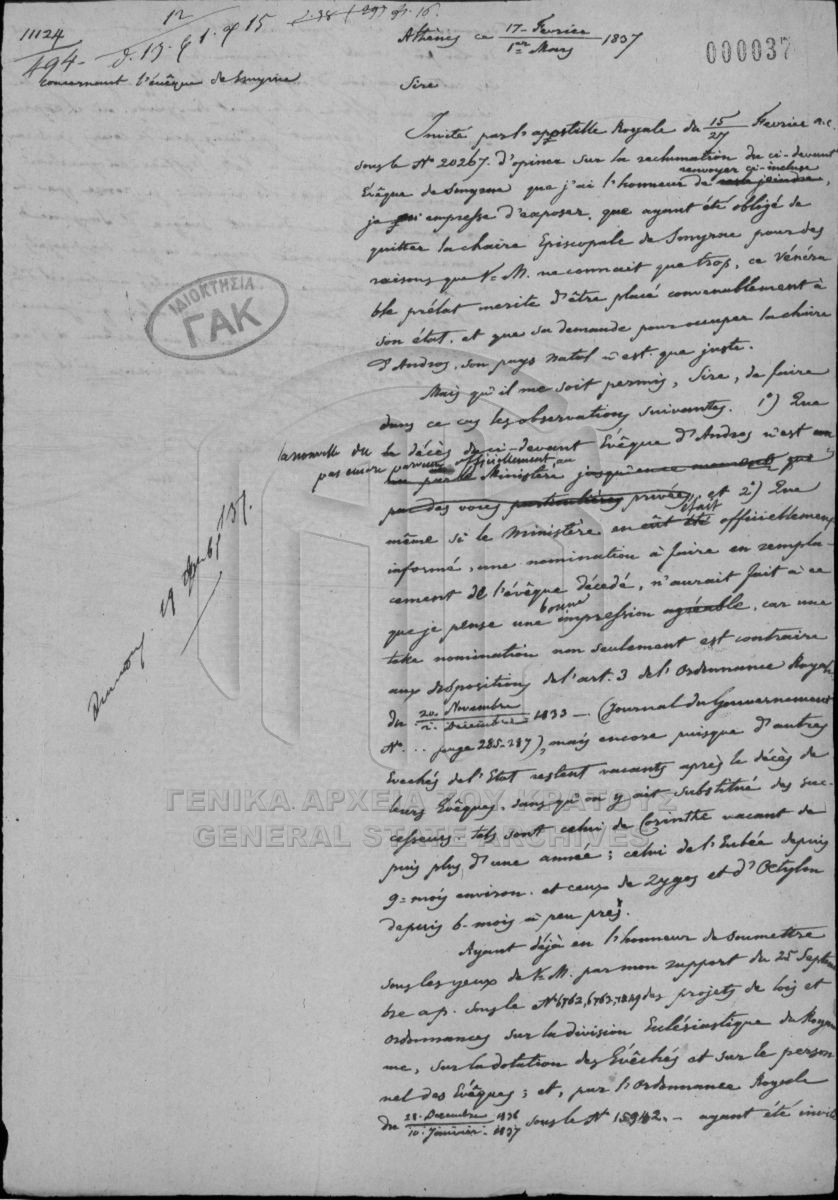 11124
494
12
δ. 13. § 1. φ 15
Concernant l'évêque de Smyrne
000037
Athènes ce 17 Fevrier / 1er Mars 1837
Sire
Invité par l'apostille Royale du 15/27 Fevrier a.c.
sous le Nº 20267. d'opiner sur la reclamation du ci-devant
Evêque de Smyrne que j'ai l'honneur de renvoyer ci-incluse,
je m'empresse d'exposer, que ayant été obligé de
quitter la chaire Episcopale de Smyrne pour des
raisons que V. M. ne connait que trop, ce vénéra
ble prélat merite d'être placé convenablement à
son état, et que sa demande pour occuper la chaire
d'Andros, son pays natal n'est que juste.
Mais qu'il me soit permis, Sire, de faire
dans ce cas les observations suivantes. 1º) Que
la nouvelle du décès du ci-devant Evêque d'Andros n'est
pas encore parvenue officiellement au
Ministère jusqu'en ce moment que
par des voies particulières privées, et 2º) Que
même si le Ministère en était officiellement
informé, une nomination à faire en rempla-
cement de l'évêque décédé, n'aurait fait à ce
que je pense une bonne impression agréable, car une
telle nomination non seulement est contraire
aux dispositions de l'art. 3 de l'Ordonnance Royale
du 20. Novembre / 2. Decembre 1833 — (Journal du Gouvernement
Nº... page 285-287), mais encore puisque d'autres
Evechés de l'Etat restent vacants après le décès de
leurs Evêques, sans qu'on y ait substitué des suc-
cesseurs tels sont celui de Corinthe vacant de
puis plus d'une année; celui de l'Eubée depuis
9= mois environ. et ceux de Zygos et d'Oetylon
depuis 6- mois à peu près.
Ayant déjà eu l'honneur de soumettre
sous les yeux de V. M. par mon rapport du 25 Septem
bre a.p. sous le Nº 6762, 6763, des projets de lois et
ordonnances sur la division Ecclésiastique du Royau
me, sur la dotation des Evêchés et sur le person
nel des Evêques; et, par l'Ordonnance Royale
du 28. Decembre 1836 / 10. Janvier. 1837 sous le Nº 15942.- ayant été invité
ΙΔΙΟΚΤΗΣΙΑ
ΓΑΚ
ΓΕΝΙΚΑ ΑΡΧΕΙΑ ΤΟΥ ΚΡΑΤΟΥΣ
GENERAL STATE ARCHIVES